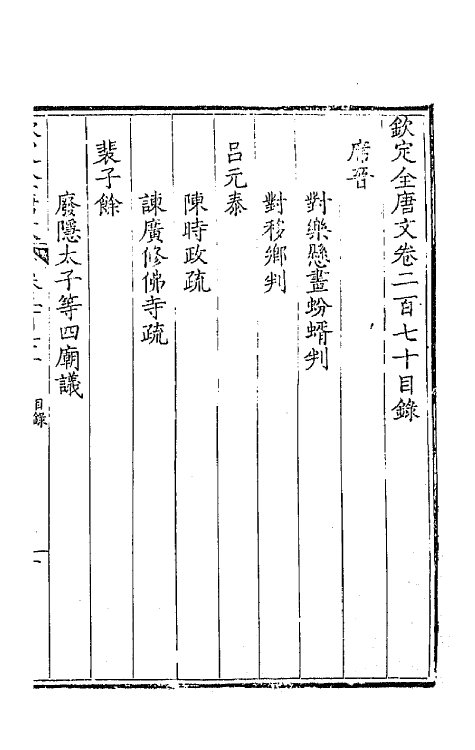 欽定全唐文卷二百七十目錄
席晉
對樂懸畫蚡蝑判
對移鄉判
呂元泰
陳時政疏
諫廣修佛寺疏
裴子餘
廢隱太子等四廟議
目錄
一